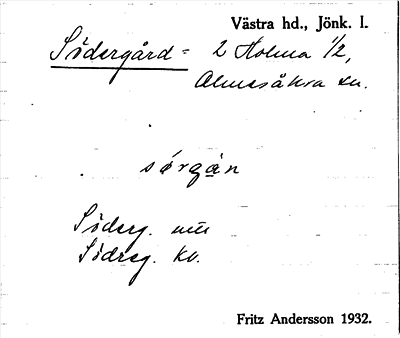 Västra hd., Jönk. l.
Södergård = 2 Holma 1/2,
Almesåkra sn.
sørgán
Söderg. mu
Södreg. kv.
Fritz Andersson 1932.